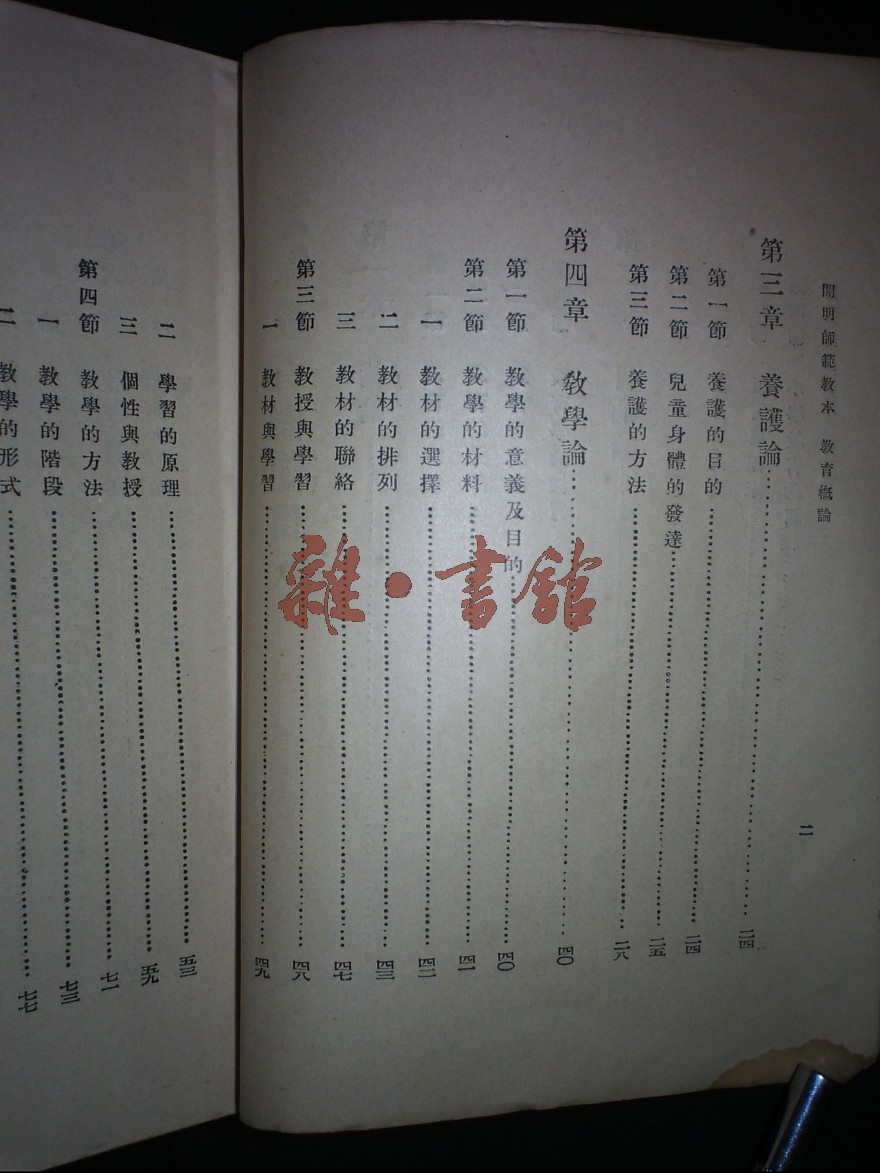 開明師範教本 教育概論
二
第三章 養護論…………二四
第一節 養護的目的…………二四
第二節 兒童身體的發達…………二五
第三節 養護的方法…………二八
第四章 教學論…………四〇
第一節 教學的意義及目的…………四〇
第二節 教學的材料…………四一
一 教材的選擇…………四二
二 教材的排列…………四三
三 教材的聯絡…………四七
第三節 教授與學習…………四八
一 教材與學習…………四九
二 學習的原理…………五三
三 個性與教授…………五九
第四節 教學的方法…………七一
一 教學的階段…………七三
二 教學的形式…………七七
雜·書館